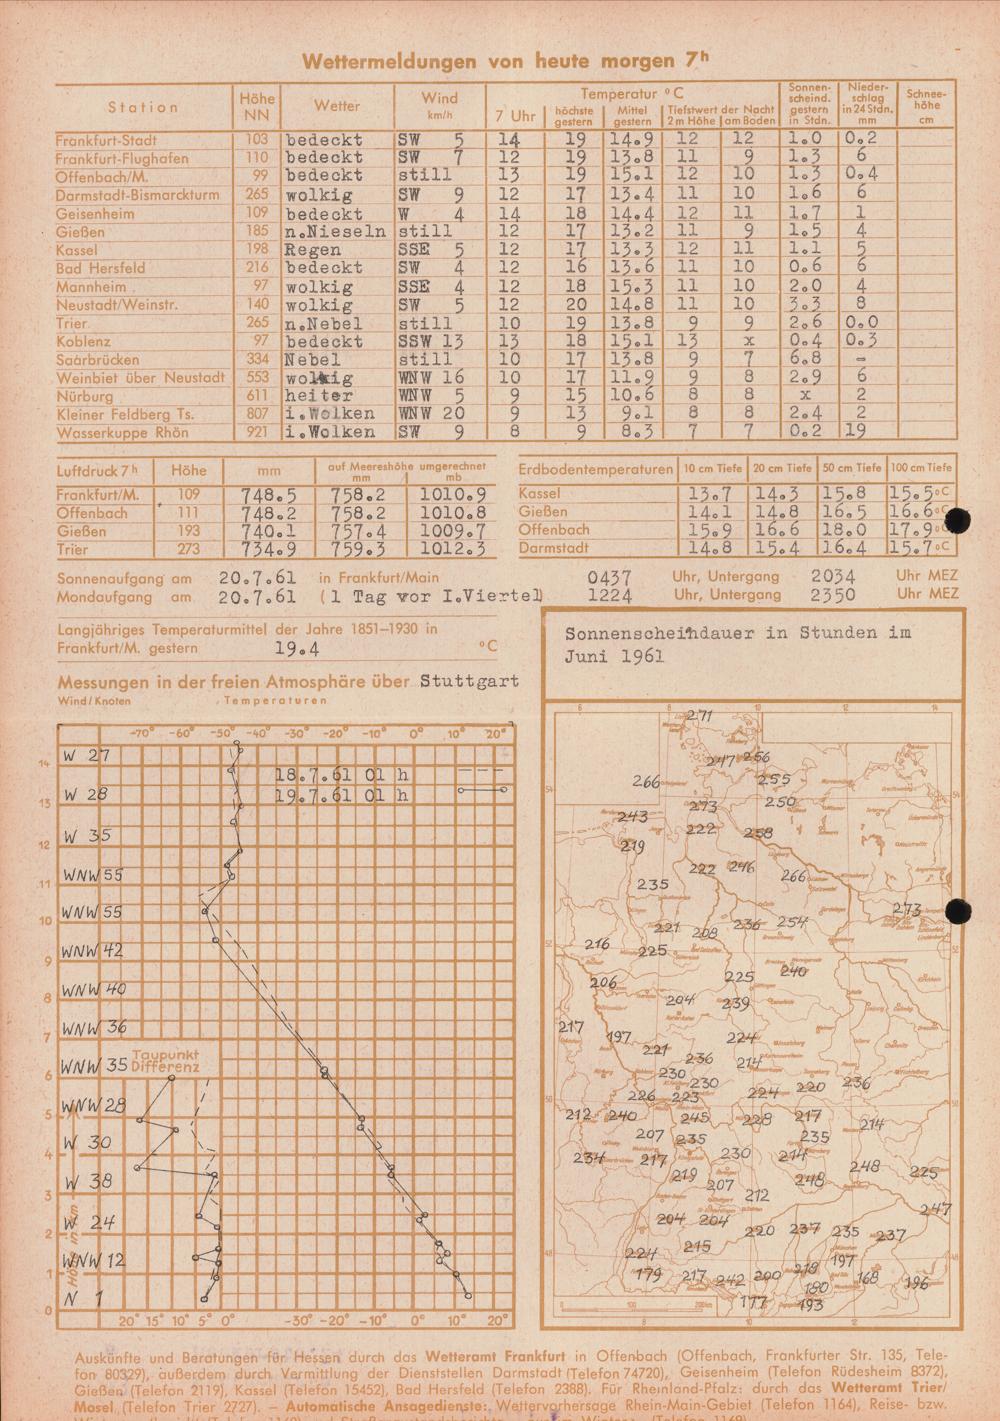 Wettermeldungen von heute morgen 7h
Station Höhe NN Wetter Wind km/h Temperatur °C Sonnenscheind. gestern in Stdn. Niederschlag in 24 Stdn. mm Schneehöhe cm
7 Uhr höchste gestern Mittel gestern Tiefstwert der Nacht 2 m Höhe am Boden
Frankfurt-Stadt 103 bedeckt SW 5 14 19 14.9 12 12 1.0 0.2
Frankfurt-Flughafen 110 bedeckt SW 7 12 19 13.8 11 9 1.3 6
Offenbach/M. 99 bedeckt still 13 19 15.1 12 10 1.3 0.4
Darmstadt-Bismarckturm 265 wolkig SW 9 12 17 13.4 11 10 1.6 6
Geisenheim 109 bedeckt W 4 14 18 14.4 12 11 1.7 1
Gießen 185 n.Nieseln still 12 17 13.2 11 9 1.5 4
Kassel 198 Regen SSE 5 12 17 13.3 12 11 1.1 5
Bad Hersfeld 216 bedeckt SW 4 12 16 13.6 11 10 0.6 6
Mannheim 97 wolkig SSE 4 12 18 15.3 11 10 2.0 4
Neustadt/Weinstr. 140 wolkig SW 5 12 20 14.8 11 10 3.3 8
Trier 265 n.Nebel still 10 19 13.8 9 9 2.6 0.0
Koblenz 97 bedeckt SSW 13 13 18 15.1 13 x 0.4 0.3
Saarbrücken 334 Nebel still 10 17 13.8 9 7 6.8 -
Weinbiet über Neustadt 553 wolkig WNW 16 10 17 11.9 9 8 2.9 6
Nürburg 611 heiter WNW 5 9 15 10.6 8 8 x 2
Kleiner Feldberg Ts. 807 i.Wolken WNW 20 9 13 9.1 8 8 2.4 2
Wasserkuppe Rhön 921 i.Wolken SW 9 8 9 8.3 7 7 0.2 19
Luftdruck 7h Höhe mm auf Meereshöhe umgerechnet mm mb
Frankfurt/M. 109 748.5 758.2 1010.9
Offenbach 111 748.2 758.2 1010.8
Gießen 193 740.1 757.4 1009.7
Trier 273 734.9 759.3 1012.3
Erdbodentemperaturen 10 cm Tiefe 20 cm Tiefe 50 cm Tiefe 100 cm Tiefe
Kassel 13.7 14.3 15.8 15.5°C
Gießen 14.1 14.8 16.5 16.6°C
Offenbach 15.9 16.6 18.0 17.9°C
Darmstadt 14.8 15.4 16.4 15.7°C
Sonnenaufgang am 20.7.61 in Frankfurt/Main 0437 Uhr, Untergang 2034 Uhr MEZ
Mondaufgang am 20.7.61 (1 Tag vor I.Viertel) 1224 Uhr, Untergang 2350 Uhr MEZ
Langjähriges Temperaturmittel der Jahre 1851–1930 in
Frankfurt/M. gestern 19.4 °C
Messungen in der freien Atmosphäre über Stuttgart
Wind/Knoten Temperaturen
-70° -60° -50° -40° -30° -20° -10° 0° 10° 20°
W 27
14
18.7.61 01 h
W 28
19.7.61 01 h
13
W 35
12
WNW 55
11
WNW 55
10
WNW 42
9
WNW 40
8
WNW 36
7
WNW 35 Taupunkt Differenz
6
WNW 28
5
W 30
4
W 38
3
W 24
2
WNW 12
1
N 1
0
Höhe in km
20° 15° 10° 5° 0° -30° -20° -10° 0° 10° 20°
Sonnenscheindauer in Stunden im
Juni 1961
6 8 10 12 14
271
247 256
266 255
273 250
243 222 258
219
222 246 266
235
273
221 208 236 254
216 225
225 240
206 204 239
217 197 224
221 236 214
230 230 220 236
226 223 224
212 240 245 228 217 214
207 235 235
234 217 230 214
219 248 248 225
207 212
247
204 204 220 237 235 237
224 215 197
179 217 242 200 218 168 196
180
177 193
0 100 200km
Auskünfte und Beratungen für Hessen durch das Wetteramt Frankfurt in Offenbach (Offenbach, Frankfurter Str. 135, Tele-
fon 80329), außerdem durch Vermittlung der Dienststellen Darmstadt (Telefon 74720), Geisenheim (Telefon Rüdesheim 8372),
Gießen (Telefon 2119), Kassel (Telefon 15452), Bad Hersfeld (Telefon 2388). Für Rheinland-Pfalz: durch das Wetteramt Trier/
Mosel (Telefon Trier 2727). – Automatische Ansagedienste: Wettervorhersage Rhein-Main-Gebiet (Telefon 1164), Reise- bzw.